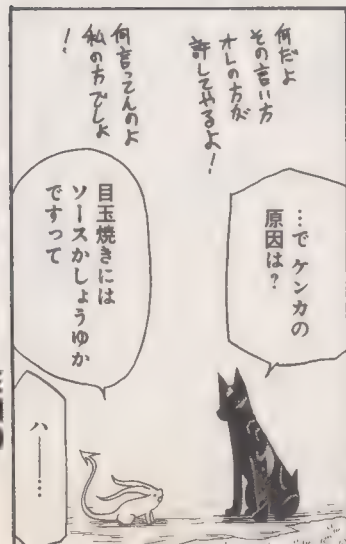 何だよ
その言い方
オレの方が
許してやるよ!
何言ってんのよ
私の方でしょ
!
…で ケンカの
原因は?
目玉焼きには
ソースかしょうゆか
ですって
ハ———…